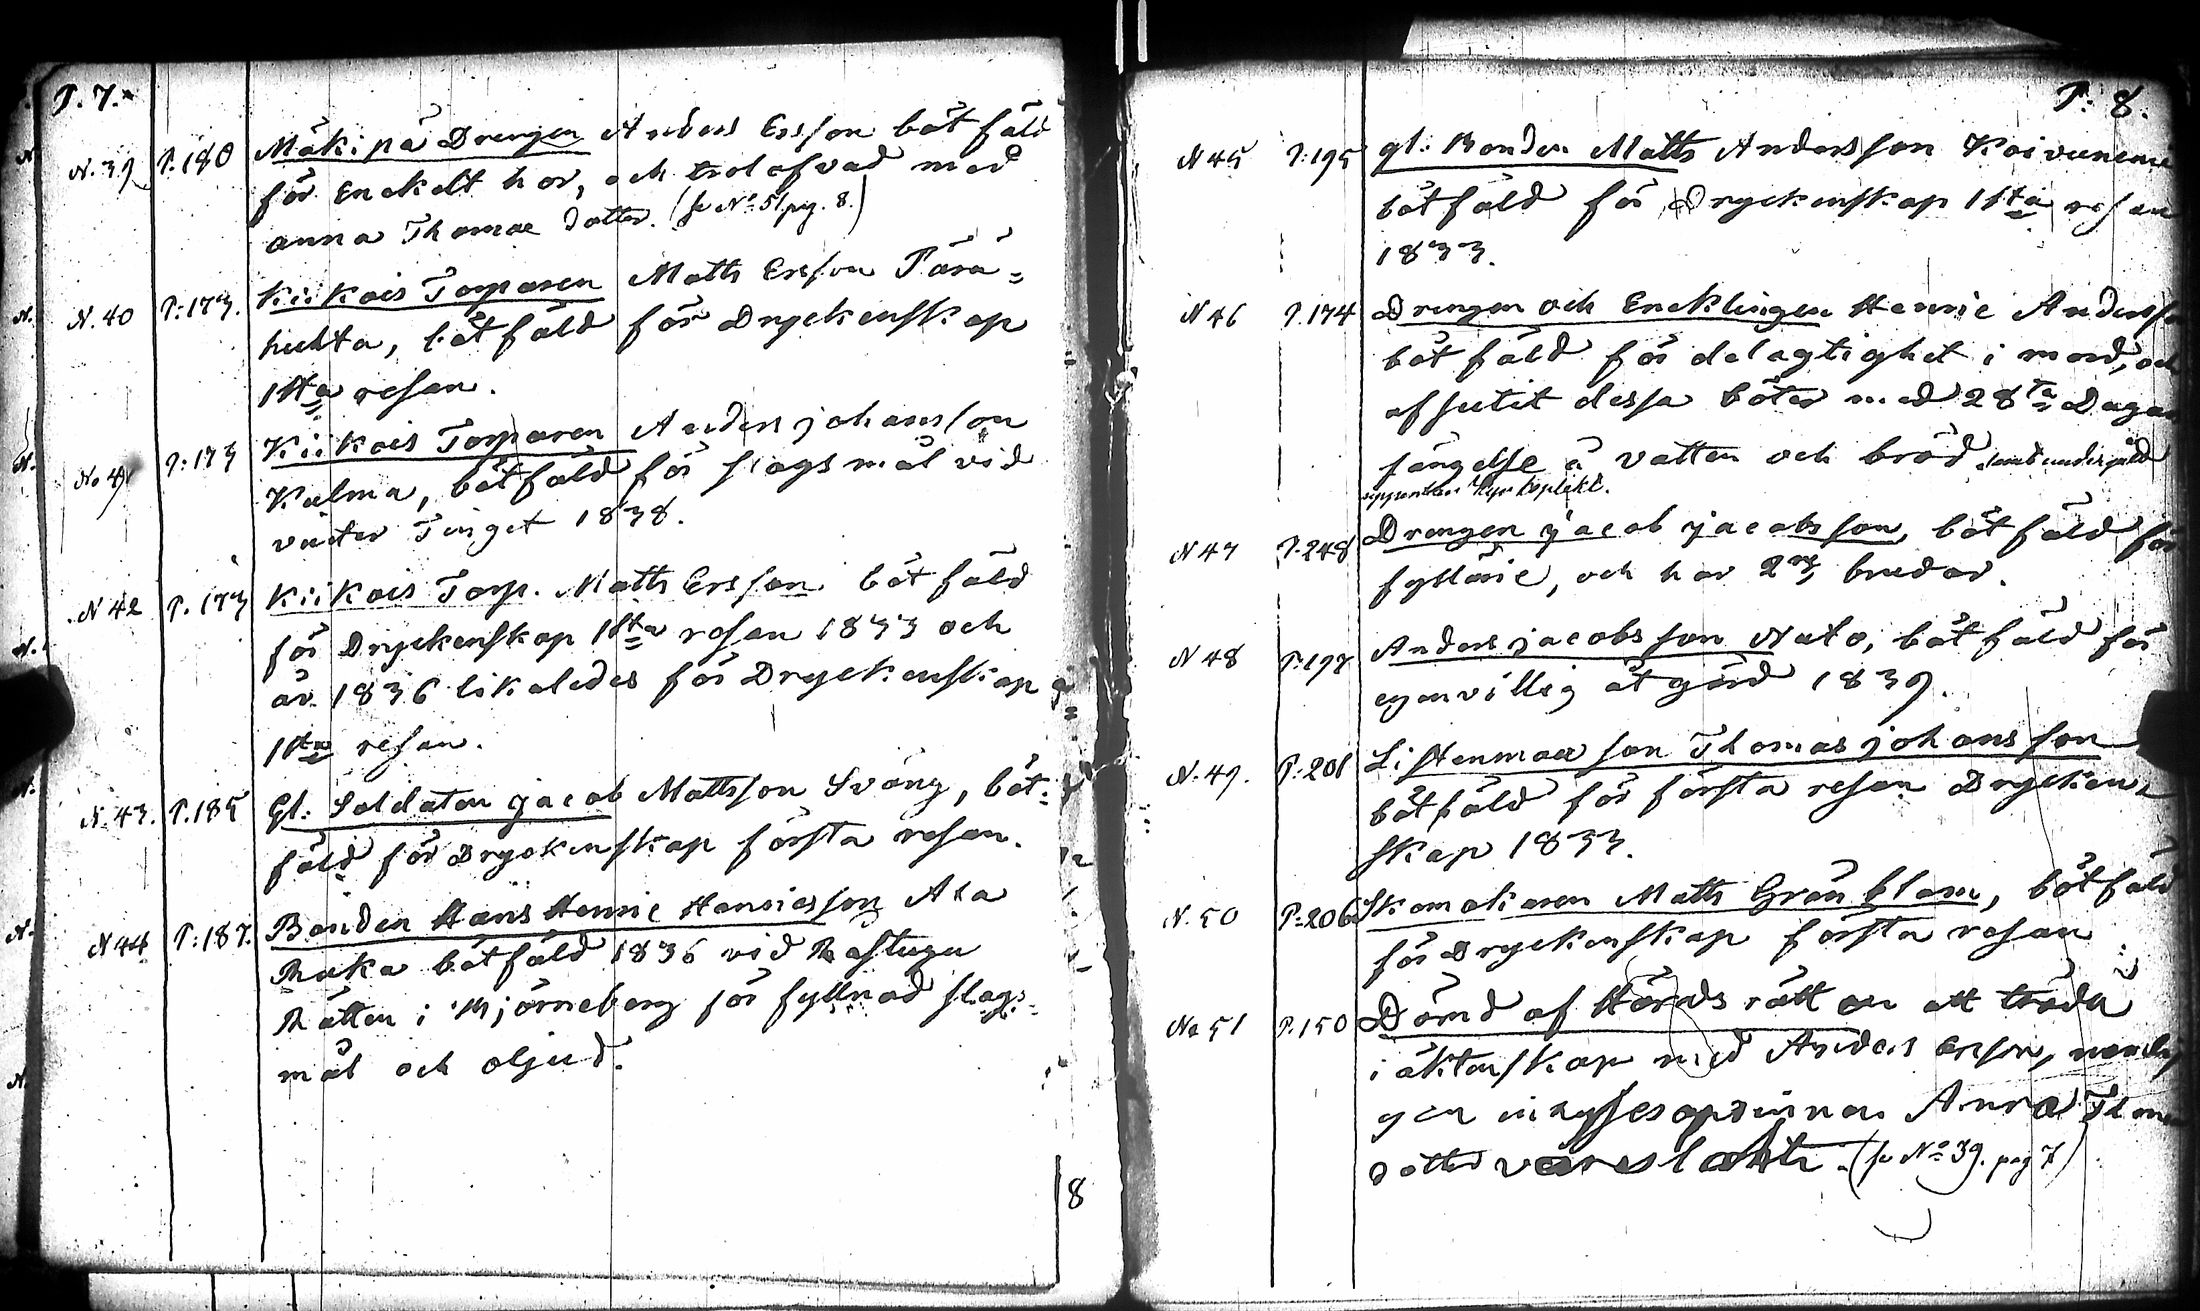 P. 7.
N. 39 P. 180 Mäkipä Drengen Anders Ersson bötfäld
för Enckelt hor, och trolofvad med
anna Thomae dotter. (se No 51 pag. 8.)
N. 40 P: 173. Kiikois Torparen Matts Ersson Pärä=
huhta, bötfäld för Dryckenskap
1sta resan.
No 41 P: 173 Kiikois Torparen Anders johansson
Kulma, bötfäld för slagsmål vid
vinter Tinget 1838.
N 42 P. 173 Kiikois Torp. Matts Ersson bötfäld
för Dryckenskap 1sta resan 1833 och
år 1836 likaledes för Dryckenskap
1sta resan.
N. 43. P. 185 Gl: Soldaten jacob Mattsson Sväng, böt=
fäld för Dryckenskap första resan.
N 44 P: 187. Bonden Hans Henric Henricsson Ala
Raka bötfäld 1836 vid Rastugu
Rätten i Björneborg för fyllnad slags=
mål och oljud.
8
P: 8.
N 45 P: 195 gl: Bonden Matts Andersson Koivuniemi
bötfäld för Dryckenskap 1sta resan
1833.
N 46 P. 174 Drengen och Encklingen Henric Andersson
bötfäld för delagtighet i mord, och
afsutit dessa böter med 28ta Dagars
fängelse å vatten och bröd samt undergått
uppenbar Kyrkoplikt.
N 47 P. 248 Drengen jacob jacobsson, bötfäld för
fylleric, och har 2ne brudar.
N 48 P: 197 Anders jacobsson Nuto, bötfäld för
egenvillig åtgörd 1839.
N. 49. P: 201 Listenmaa son Thomas johansson
bötfäld för första resan Drycken=
skap 1833.
N. 50 P: 206 Skomakaren Matts Grönblom, bötfäld
för Dryckenskap första resan
No 51 P. 150 Dömd af Härads rätten att träda
i äktenskap med Anders Ersson,
inhysesqvinnan Anna
dotter (se No 39. pag 7)